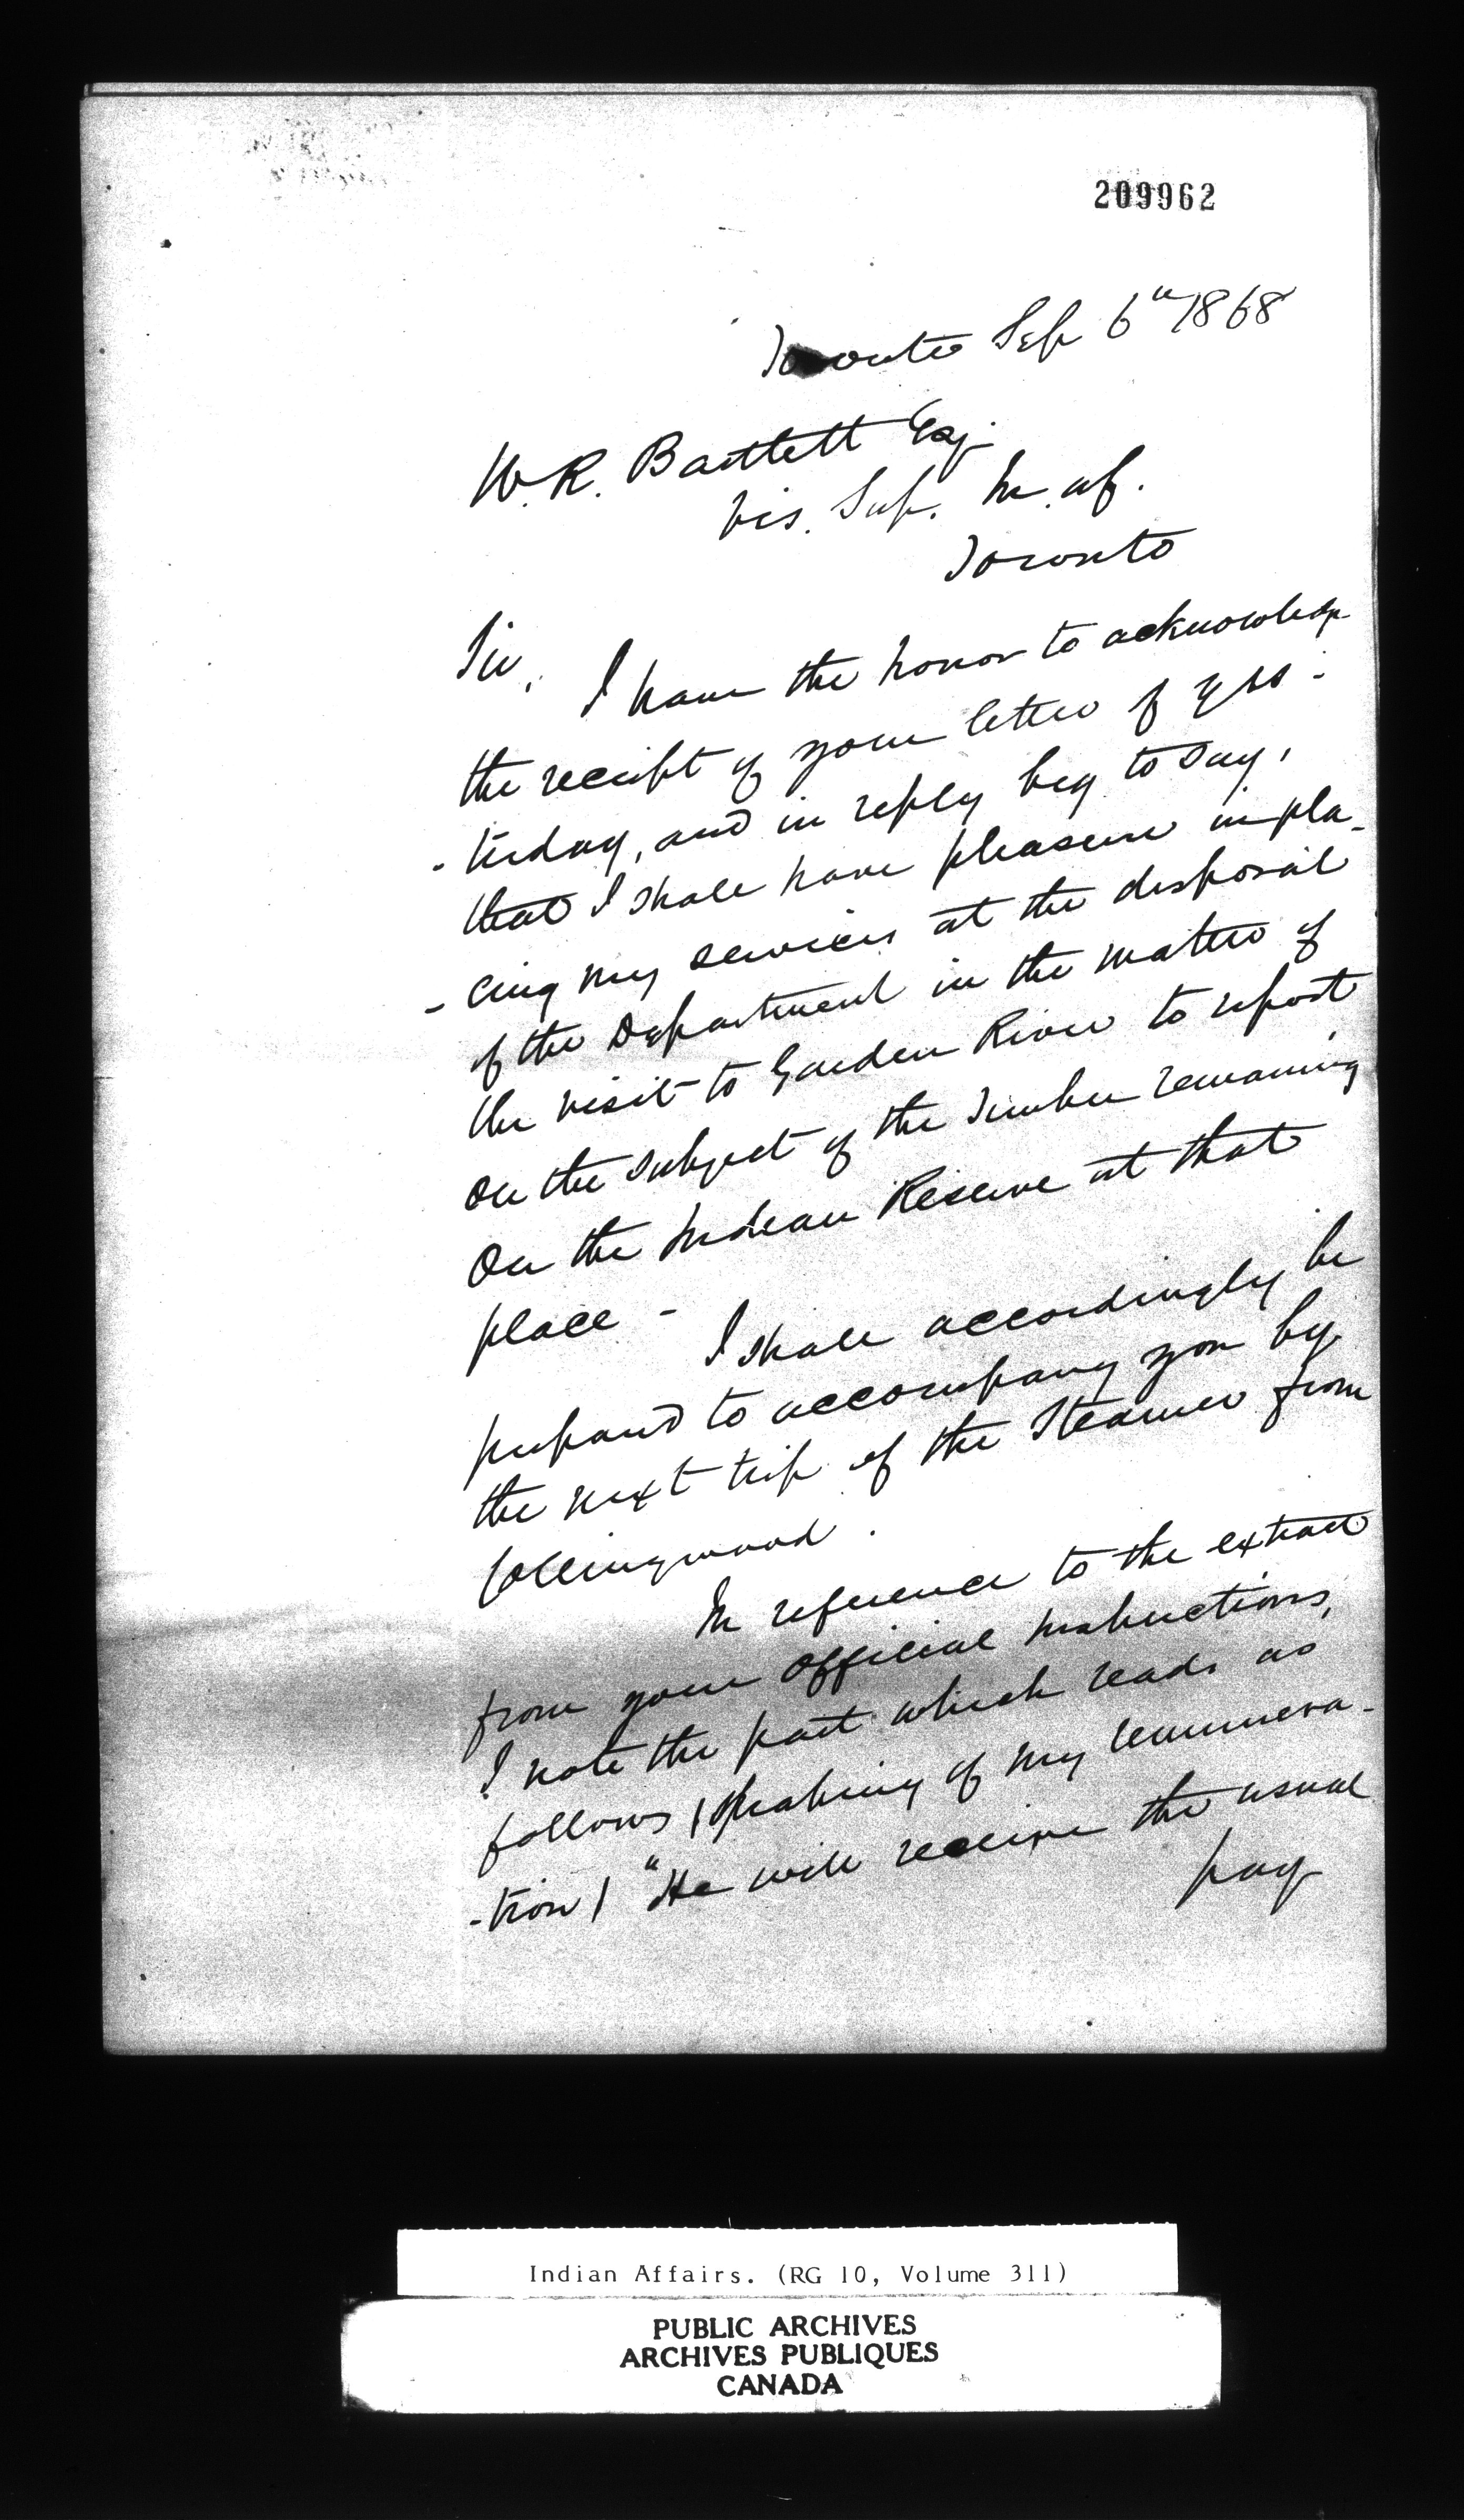 209962
Toronto Sep 6th 1868
W. R. Bartlett Esq.
Vis. Sup. In. aff.
Toronto
Sir,
I have the honor to acknowledge
the receipt of your letter of yes-
-terday, and in reply beg to say,
that I shall have pleasure in pla-
-cing my services at the disposal
of the Department in the matter of
the visit to Garden River to report
on the subject of the Timber remaining
on the Indian Reserve at that
place -
I shall accordingly be
prepared to accompany you by
the next trip of the Steamer from
Collingwood.
In reference to the extract
from your official instructions,
I note the part which reads as
follows (speaking of my remunera-
-tion) "He will receive the usual
pay
Indian Affairs. (RG 10, Volume 311)
PUBLIC ARCHIVES
ARCHIVES PUBLIQUES
CANADA